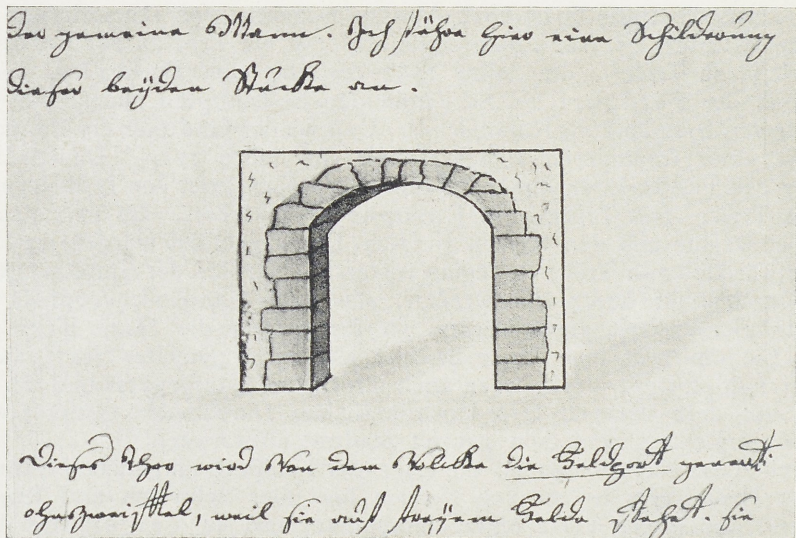 der gemeine Mann. Ich führe hier eine Schilderung
dieser beyden Stücke an.
Dieses Thor wird von dem Volcke die Feldport genent
ohnzweifftel, weil sie auf freyem Felde stehet. sie